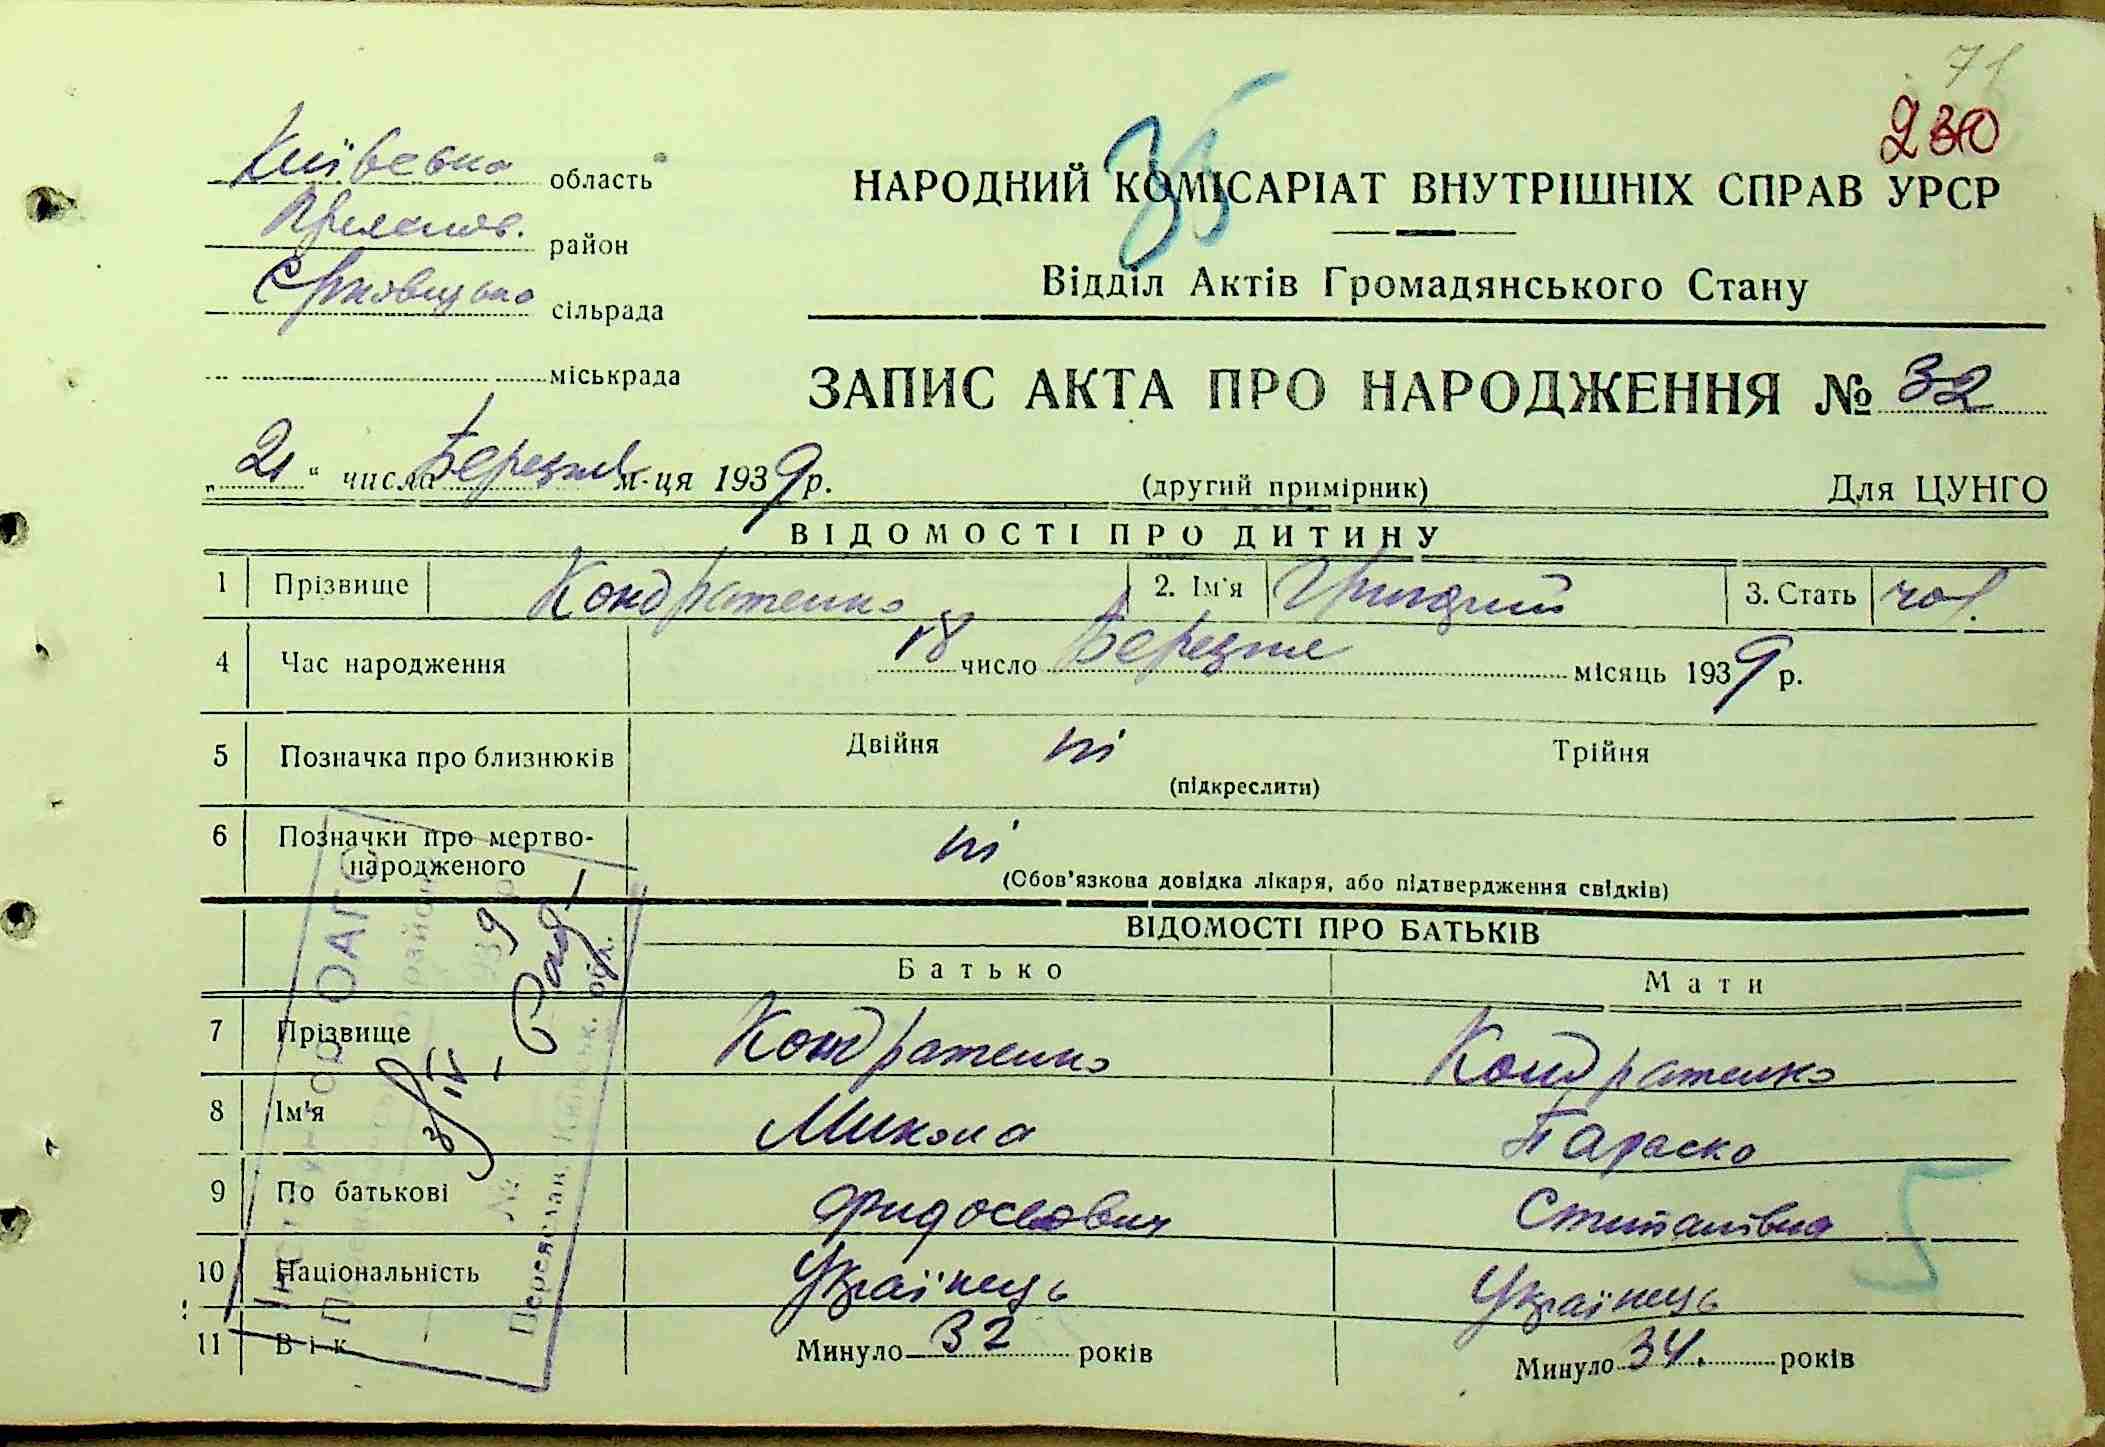 71
230
35
Київська область
район
сільрада
міськрада
НАРОДНИЙ КОМІСАРІАТ ВНУТРІШНІХ СПРАВ УРСР
Відділ Актів Громадянського Стану
ЗАПИС АКТА ПРО НАРОДЖЕННЯ № 32
„21“ числа Березня м-ця 1939 р. (другий примірник) Для ЦУНГО
ВІДОМОСТІ ПРО ДИТИНУ
1 Прізвище Кондратенко 2. Ім'я 3. Стать чол.
4 Час народження 18 число Березня місяць 1939 р.
5 Позначка про близнюків Двійня ні Трійня
(підкреслити)
6 Позначки про мертво-
народженого ні
(Обов'язкова довідка лікаря, або підтвердження свідків)
ВІДОМОСТІ ПРО БАТЬКІВ
Батько Мати
7 Прізвище Кондратенко Кондратенко
8 Ім'я Микола Параска
9 По батькові Фидосеович Стипанівна
10 Національність Українець Українець
11 Вік Минуло 32 років Минуло 34. років
5